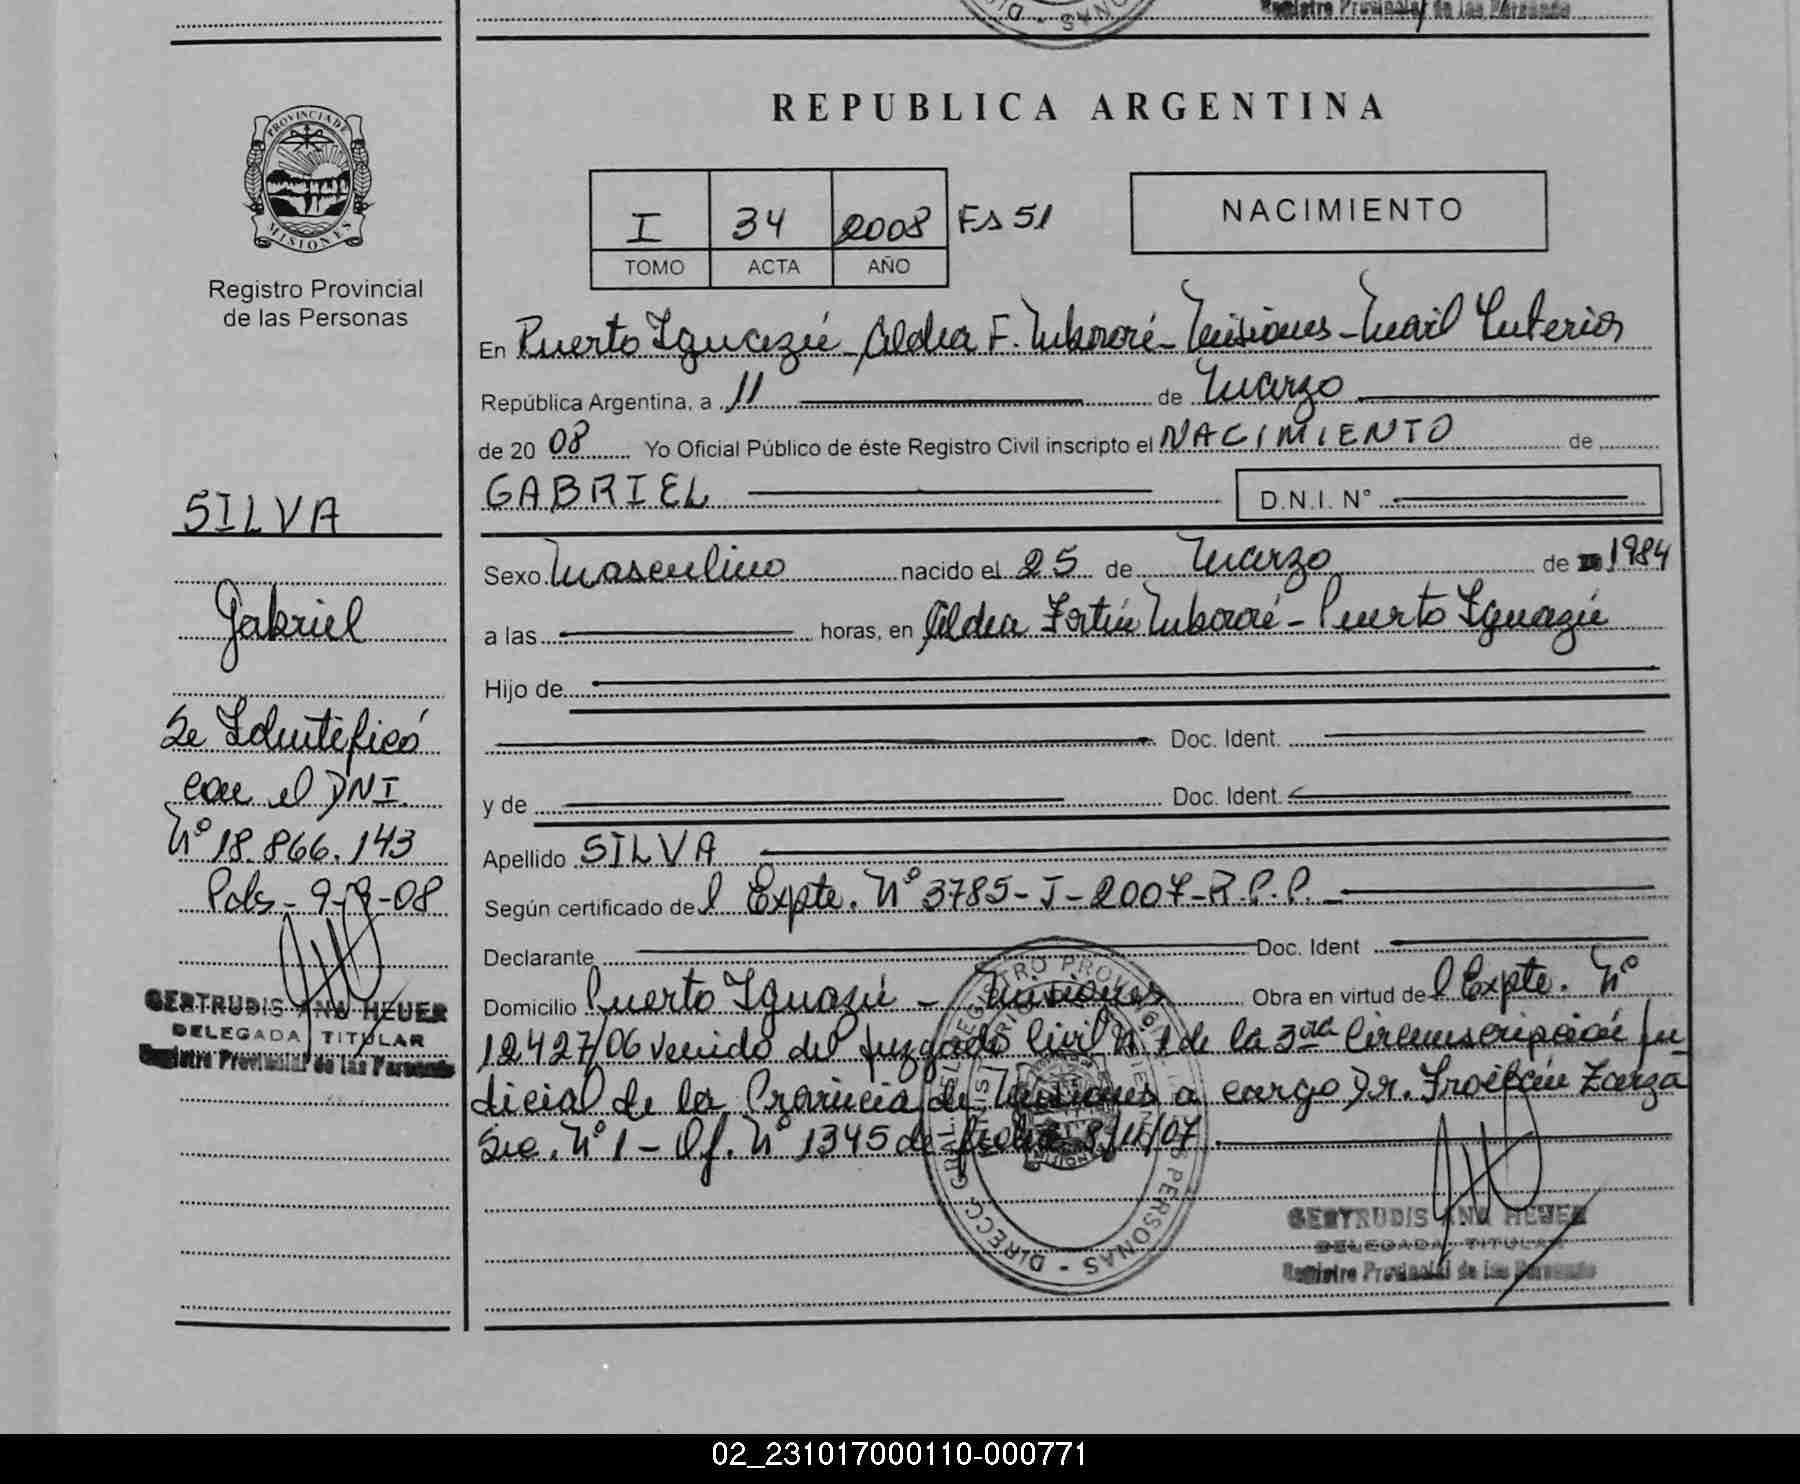 Registro Provincial de las Personas
REPUBLICA ARGENTINA
PROVINCIA DE
MISIONES
Registro Provincial
de las Personas
I 34 2008 Fs 51
TOMO ACTA AÑO
NACIMIENTO
En Puerto Iguazú - Aldea F. Mbororé - Misiones -
República Argentina, a 11 de Marzo
de 20 08 Yo Oficial Público de éste Registro Civil inscripto el NACIMIENTO de
GABRIEL D.N.I. N°
Sexo Masculino nacido el 25 de Marzo de 1984
a las horas, en Aldea Fortín Mbororé - Puerto Iguazú
Hijo de
Doc. Ident.
y de Doc. Ident.
Apellido SILVA
Según certificado del Expte. N° 3785-J-2007-R.P.P.
Declarante Doc. Ident
Domicilio Puerto Iguazú - Misiones Obra en virtud del Expte. N°
12427/06 venido del Juzgado Civil N° 1 de la 3ra Circunscripción Ju
dicial de la Provincia de Misiones a cargo Dr. Froilán Zarza
Sec. N° 1 - Of. N° 1345 de fecha 8/11/07.
GERTRUDIS ANA HEUER
DELEGADA TITULAR
Registro Provincial de las Personas
SILVA
Gabriel
Se Identificó
con el DNI
N° 18.866.143
GERTRUDIS ANA HEUER
DELEGADA TITULAR
Registro Provincial de las Personas
02_231017000110-000771